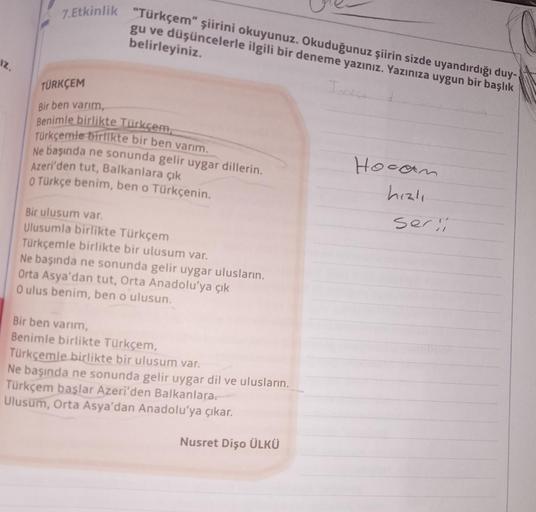 7.Etkinlik "Türkçem" şiirini okuyunuz. Okuduğunuz şiirin sizde uyandırdığı duy-
gu ve düşüncelerle ilgili bir deneme yazınız. Yazınıza uygun bir başlık
belirleyiniz.
ız.
TÜRKÇEM
Bir ben varım,
Benimle birlikte Türkçem,
Türkçemle birlikte bir ben varım.
Ne başında ne sonunda gelir uygar dillerin.
Azeri'den tut, Balkanlara çık
O Türkçe benim, ben o Türkçenin.
Bir ulusum var.
Ulusumla birlikte Türkçem
Türkçemle birlikte bir ulusum var.
Ne başında ne sonunda gelir uygar ulusların.
Orta Asya'dan tut, Orta Anadolu'ya çık
O ulus benim, ben o ulusun.
Bir ben varım,
Benimle birlikte Türkçem,
Türkçemle birlikte bir ulusum var.
Ne başında ne sonunda gelir uygar dil ve ulusların.
Türkçem başlar Azeri'den Balkanlara.
Ulusum, Orta Asya'dan Anadolu'ya çıkar.
Nusret Dişo ÜLKÜ
Hocam
hızlı
serii